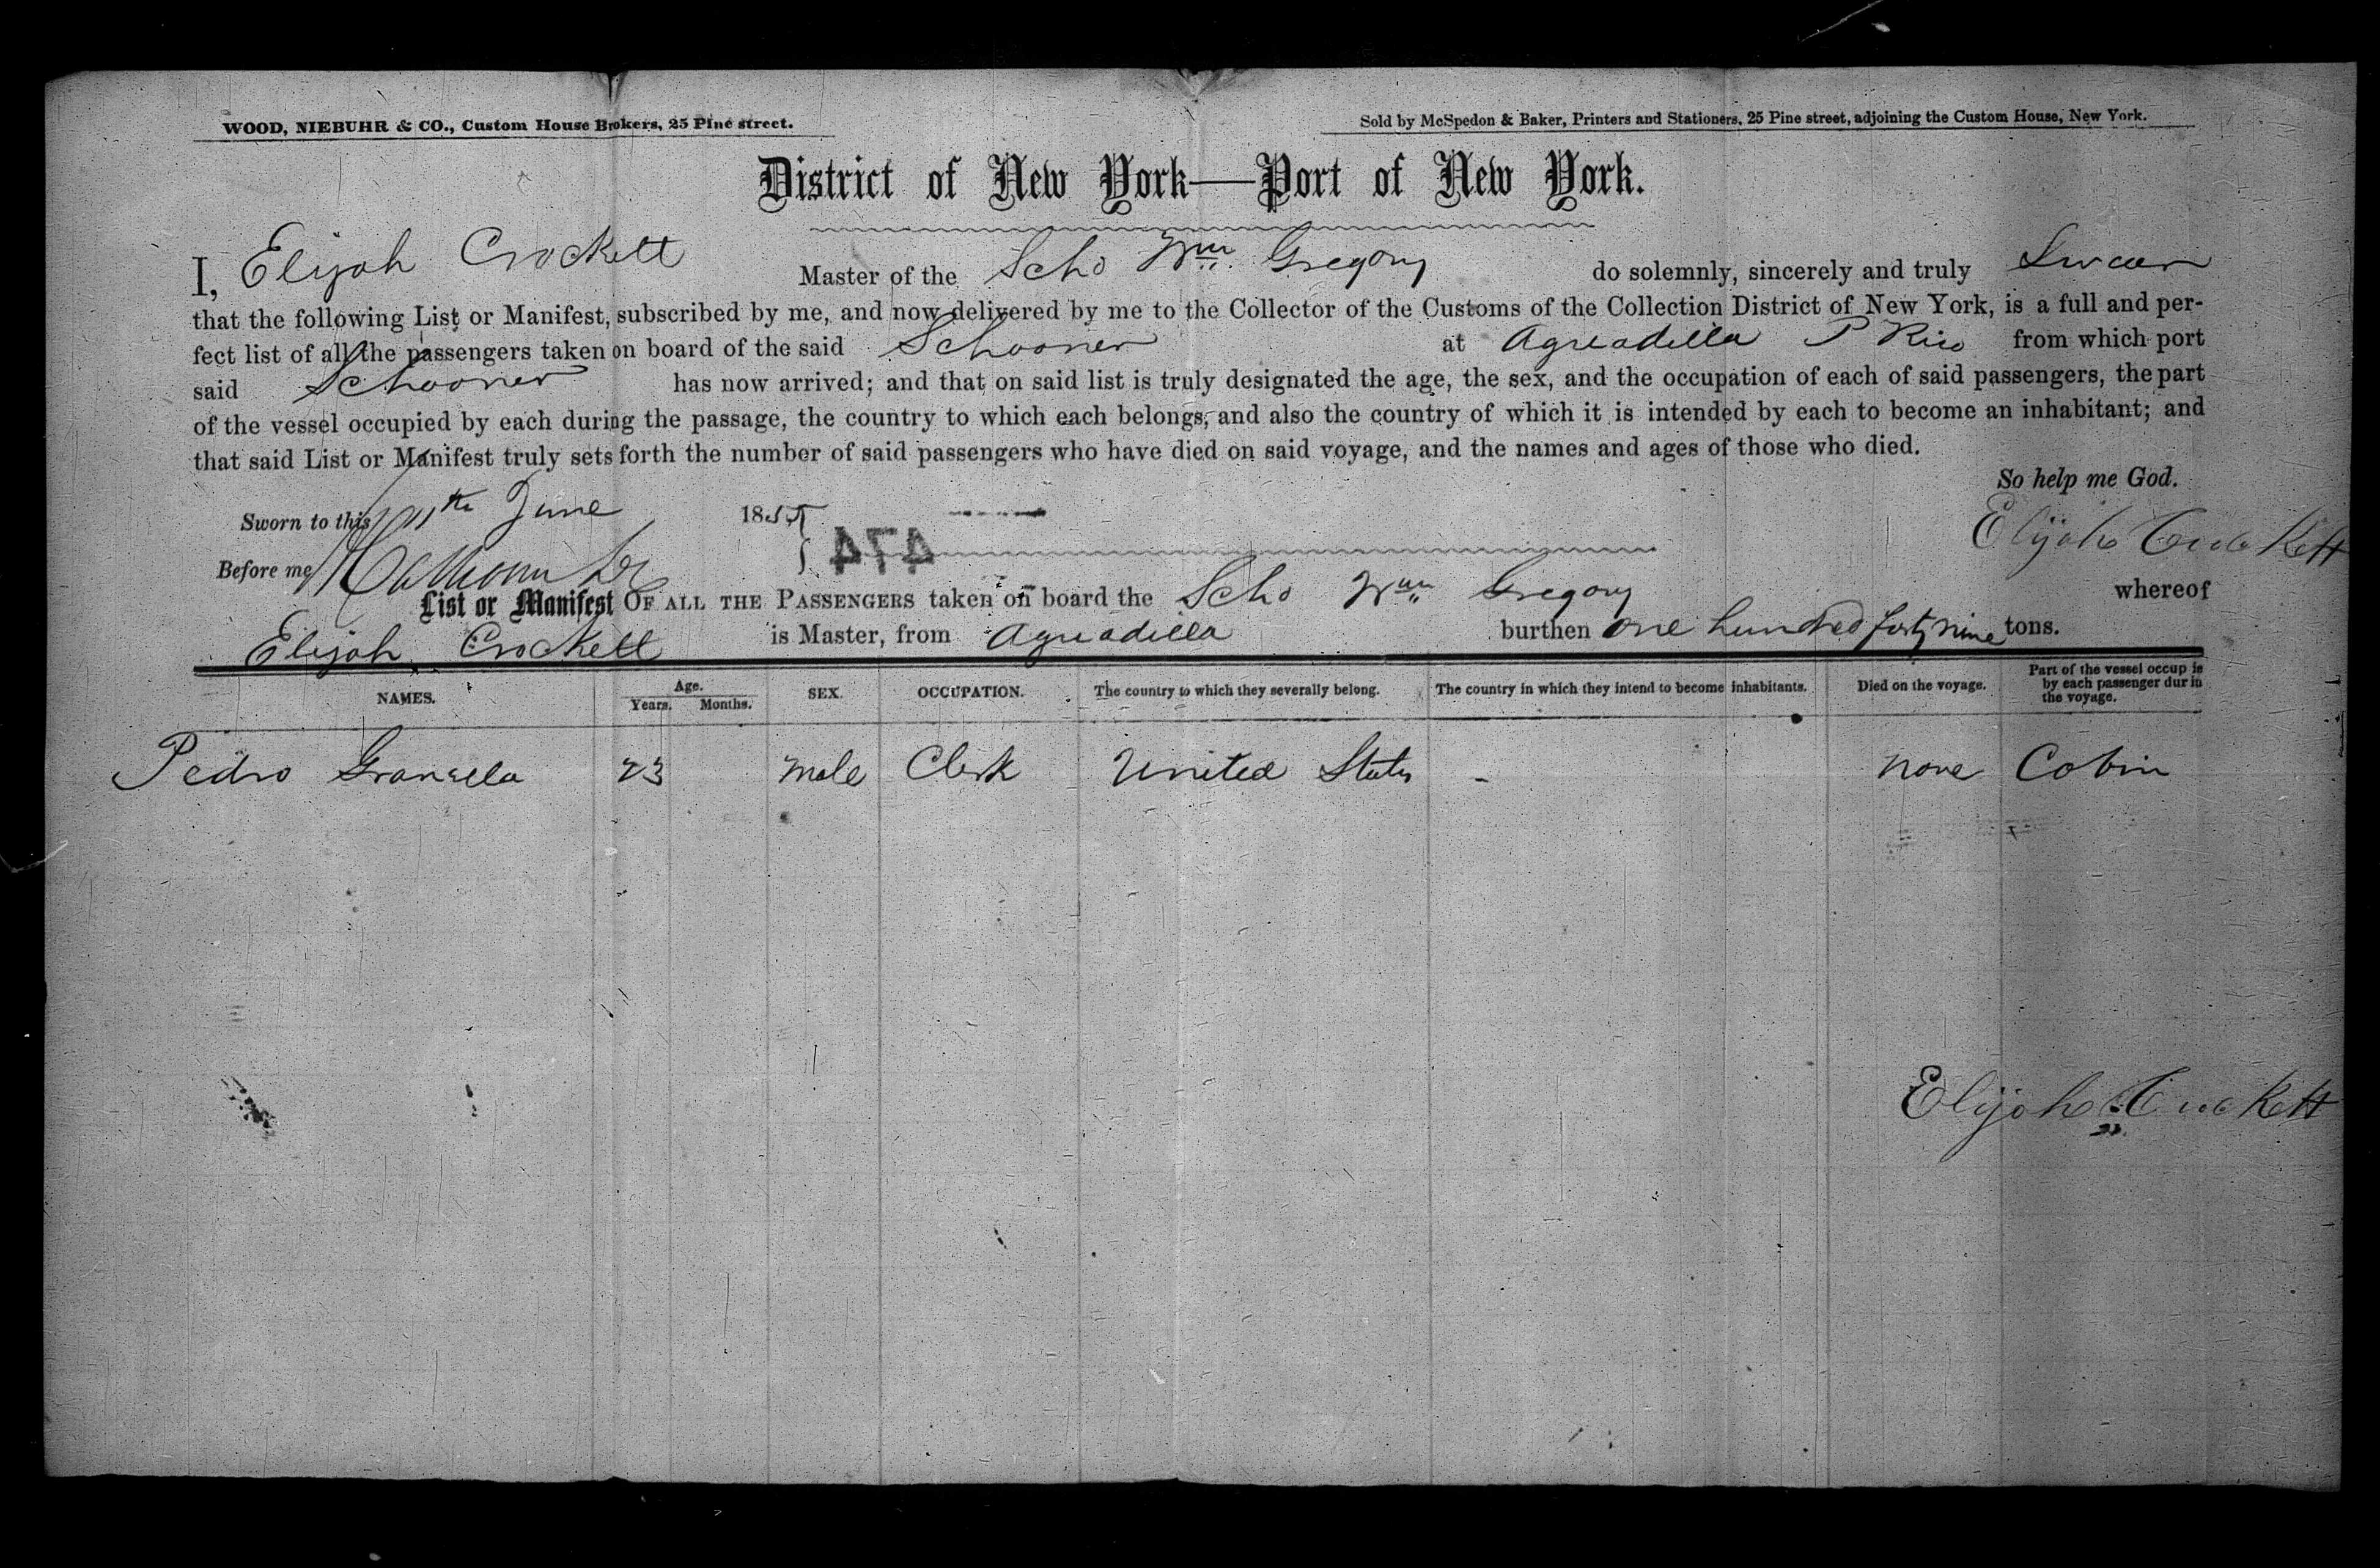 WOOD, NIEBUHR & CO., Custom House Brokers, 25 Pine street.
Sold by McSpedon & Baker, Printers and Stationers, 25 Pine street, adjoining the Custom House, New York.
District of New York—Port of New York.
I, Elijah Crockett Master of the Scho Wm Gregory do solemnly, sincerely and truly Swear
that the following List or Manifest, subscribed by me, and now delivered by me to the Collector of the Customs of the Collection District of New York, is a full and per-
fect list of all the passengers taken on board of the said Schooner at Aguadilla P Rico from which port
said Schooner has now arrived; and that on said list is truly designated the age, the sex, and the occupation of each of said passengers, the part
of the vessel occupied by each during the passage, the country to which each belongs, and also the country of which it is intended by each to become an inhabitant; and
that said List or Manifest truly sets forth the number of said passengers who have died on said voyage, and the names and ages of those who died.
So help me God.
Sworn to this 11th June 1855
474
Elijah Crockett
Before me
List or Manifest OF ALL THE PASSENGERS taken on board the Scho Wm Gregory whereof
Elijah Crockett is Master, from Aguadilla burthen One hundred forty nine tons.
NAMES. Age. Years. Months. SEX. OCCUPATION. The country to which they severally belong. The country in which they intend to become inhabitants. Died on the voyage. Part of the vessel occup ie by each passenger dur in the voyage.
Pedro 23 Male Clerk United States - None Cabin
Elijah Crockett